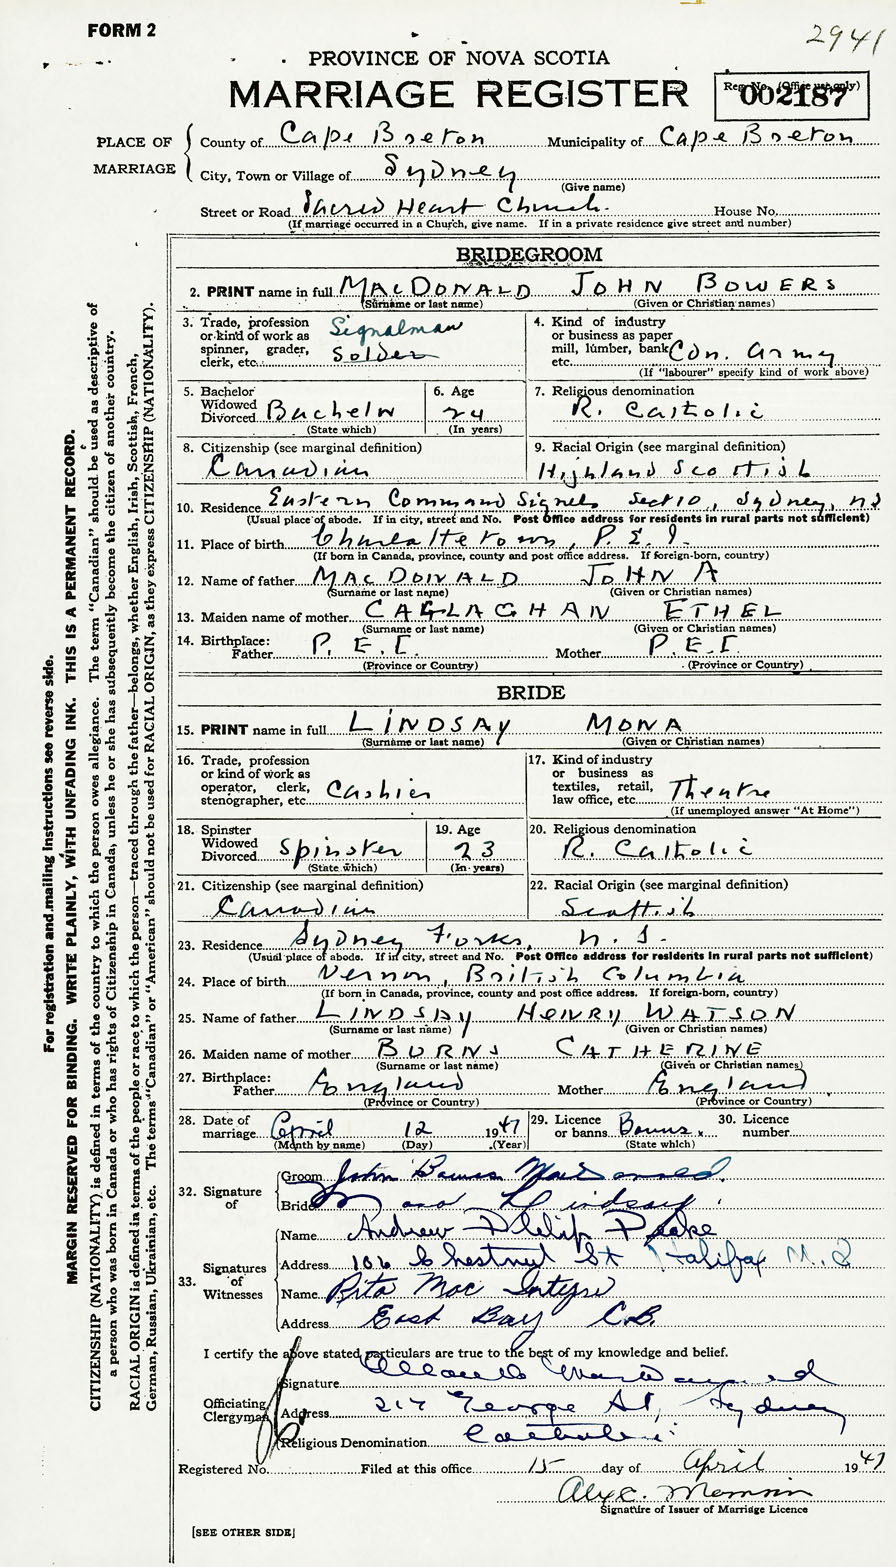 FORM 2
2941
PROVINCE OF NOVA SCOTIA
MARRIAGE REGISTER
Reg. No. (Office use only)
002187
PLACE OF MARRIAGE
County of Cape Breton Municipality of Cape Breton
City, Town or Village of Sydney
(Give name)
Street or Road Sacred Heart Church. House No.
(If marriage occurred in a Church, give name. If in a private residence give street and number)
BRIDEGROOM
2. PRINT name in full MACDONALD JOHN BOWERS
(Surname or last name) (Given or Christian names)
3. Trade, profession or kind of work as spinner, grader, clerk, etc. Signalman Solder
4. Kind of industry or business as paper mill, lumber, bank etc. Can. Army
(If "labourer" specify kind of work above)
5. Bachelor Widowed Divorced Bachelor
(State which)
6. Age 24
(In years)
7. Religious denomination R. Catholic
8. Citizenship (see marginal definition) Canadian
9. Racial Origin (see marginal definition) Highland Scottish
10. Residence Eastern Command Signals Sect 10, Sydney, NS
(Usual place of abode. If in city, street and No. Post Office address for residents in rural parts not sufficient)
11. Place of birth Charlottetown, P.E.I.
(If born in Canada, province, county and post office address. If foreign-born, country)
12. Name of father MACDONALD JOHN A
(Surname or last name) (Given or Christian names)
13. Maiden name of mother CALLAGHAN ETHEL
(Surname or last name) (Given or Christian names)
14. Birthplace: Father P.E.I. Mother P.E.I
(Province or Country) (Province or Country)
BRIDE
15. PRINT name in full LINDSAY MONA
(Surname or last name) (Given or Christian names)
16. Trade, profession or kind of work as operator, clerk, stenographer, etc. Cashier
17. Kind of industry or business as textiles, retail, law office, etc. Theatre
(If unemployed answer "At Home")
18. Spinster Widowed Divorced Spinster
(State which)
19. Age 23
(In years)
20. Religious denomination R. Catholic
21. Citizenship (see marginal definition) Canadian
22. Racial Origin (see marginal definition) Scottish
23. Residence Sydney Forks, N.S.
(Usual place of abode. If in city, street and No. Post Office address for residents in rural parts not sufficient)
24. Place of birth Vernon, British Columbia
(If born in Canada, province, county and post office address. If foreign-born, country)
25. Name of father LINDSAY HENRY WATSON
(Surname or last name) (Given or Christian names)
26. Maiden name of mother BURNS CATHERINE
(Surname or last name) (Given or Christian names)
27. Birthplace: Father England Mother England
(Province or Country) (Province or Country)
28. Date of marriage April 12 1947
(Month by name) (Day) (Year)
29. Licence or banns Banns
(State which)
30. Licence number
32. Signature of
Groom John Bowers MacDonald.
Bride Mona Lindsay.
33. Signatures of Witnesses
Name Andrew Philip Peake
Address 106 Chestnut St Halifax N.S
Name Rita MacIntyre
Address East Bay C.B.
I certify the above stated particulars are true to the best of my knowledge and belief.
Officiating Clergyman
Signature
Address 217 George St, Sydney
Religious Denomination Catholic
Registered No. Filed at this office 15 day of April 1947
Alex.
Signature of Issuer of Marriage Licence
[SEE OTHER SIDE]
For registration and mailing instructions see reverse side.
MARGIN RESERVED FOR BINDING. WRITE PLAINLY, WITH UNFADING INK. THIS IS A PERMANENT RECORD.
CITIZENSHIP (NATIONALITY) is defined in terms of the country to which the person owes allegiance. The term "Canadian" should be used as descriptive of
a person who was born in Canada or who has rights of Citizenship in Canada, unless he or she has subsequently become the citizen of another country.
RACIAL ORIGIN is defined in terms of the people or race to which the person—traced through the father—belongs, whether English, Irish, Scottish, French,
German, Russian, Ukrainian, etc. The terms "Canadian" or "American" should not be used for RACIAL ORIGIN, as they express CITIZENSHIP (NATIONALITY).